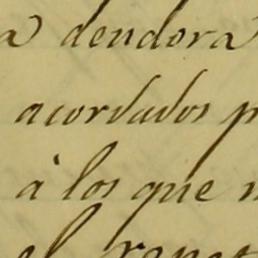 a deudora
acordados p
à los que n
el